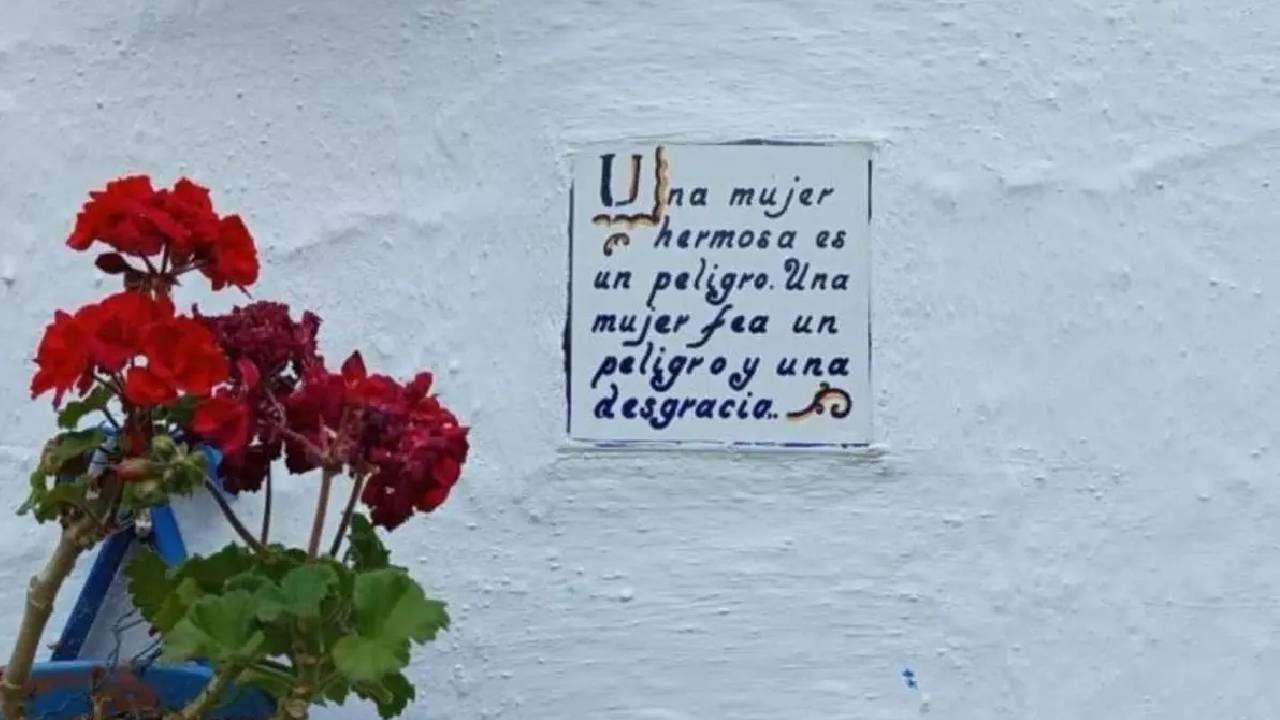 Una mujer
hermosa es
un peligro. Una
mujer fea un
peligro y una
desgracia..